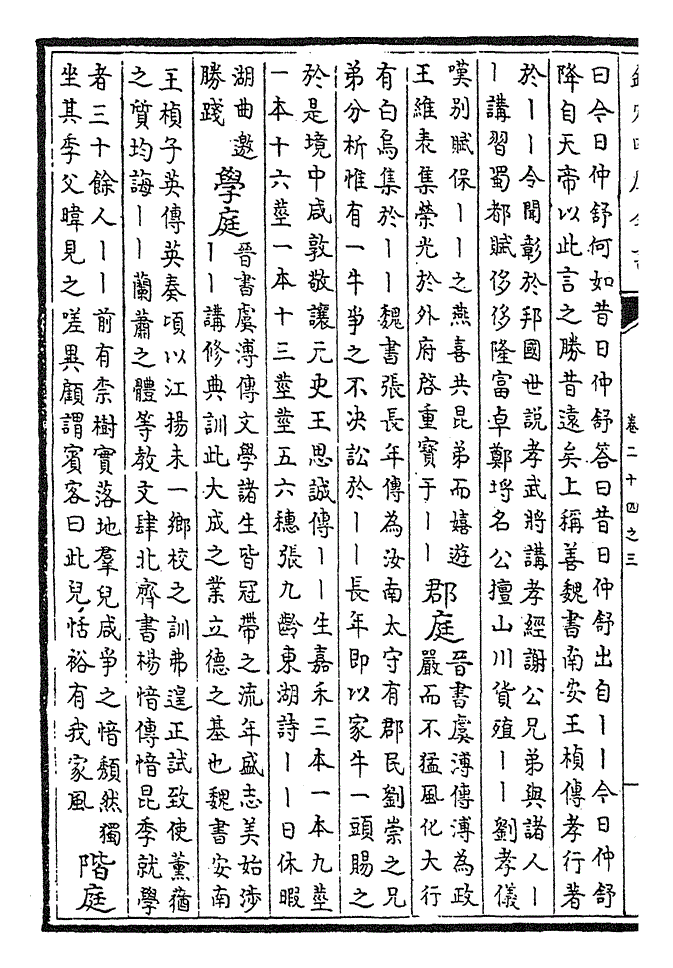 卷二十四之三
曰今日仲舒何如昔日仲舒答曰昔日仲舒出自丨丨今日仲舒
降自天帝以此言之勝昔遠矣上稱善魏書南安王楨傳孝行著
於丨丨令聞彰於邦國世說孝武將講孝經謝公兄弟與諸人丨
丨講習蜀都賦侈侈隆富卓鄭埒名公擅山川貨殖丨丨劉孝儀
嘆别賦保丨丨之燕喜共昆弟而嬉遊
王維表集榮光於外府啓重寳于丨丨
郡庭
晉書虞溥傳溥為政
嚴而不猛風化大行
有白烏集於丨丨魏書張長年傳為汝南太守有郡民劉崇之兄
弟分析惟有一牛爭之不決訟於丨丨長年即以家牛一頭賜之
於是境中咸敦敬讓元史王思誠傳丨丨生嘉禾三本一本九莖
一本十六莖一本十三莖莖五六穗張九齡東湖詩丨丨日休暇
湖曲邀
勝踐
學庭
晉書虞溥傳文學諸生皆冠帶之流年盛志美始涉
丨丨講修典訓此大成之業立德之基也魏書安南
王楨子英傳英奏頃以江揚未一鄉校之訓弗遑正試致使薰蕕
之質均誨丨丨蘭蕭之體等教文肆北齊書楊愔傳愔昆季就學
者三十餘人丨丨前有柰樹實落地羣兒咸爭之愔頹然獨
坐其季父暐見之嗟異顧謂賓客曰此兒恬裕有我家風
階庭